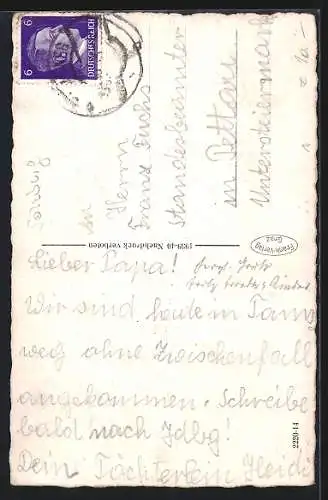 Sonntag
An
Herrn
Franz Fuchs
Standesbeamter
in Pettau
Untersteiermark
DEUTSCHES REICH
6
6
1939-40 Nachdruck verboten
Frank-Verlag
Graz
Lieber Papa!
Wir sind heute in Tams
weg ohne Zwischenfall
angekommen. Schreibe
bald nach Jdbg!
Dein Töchterlein Heidi
2220-14